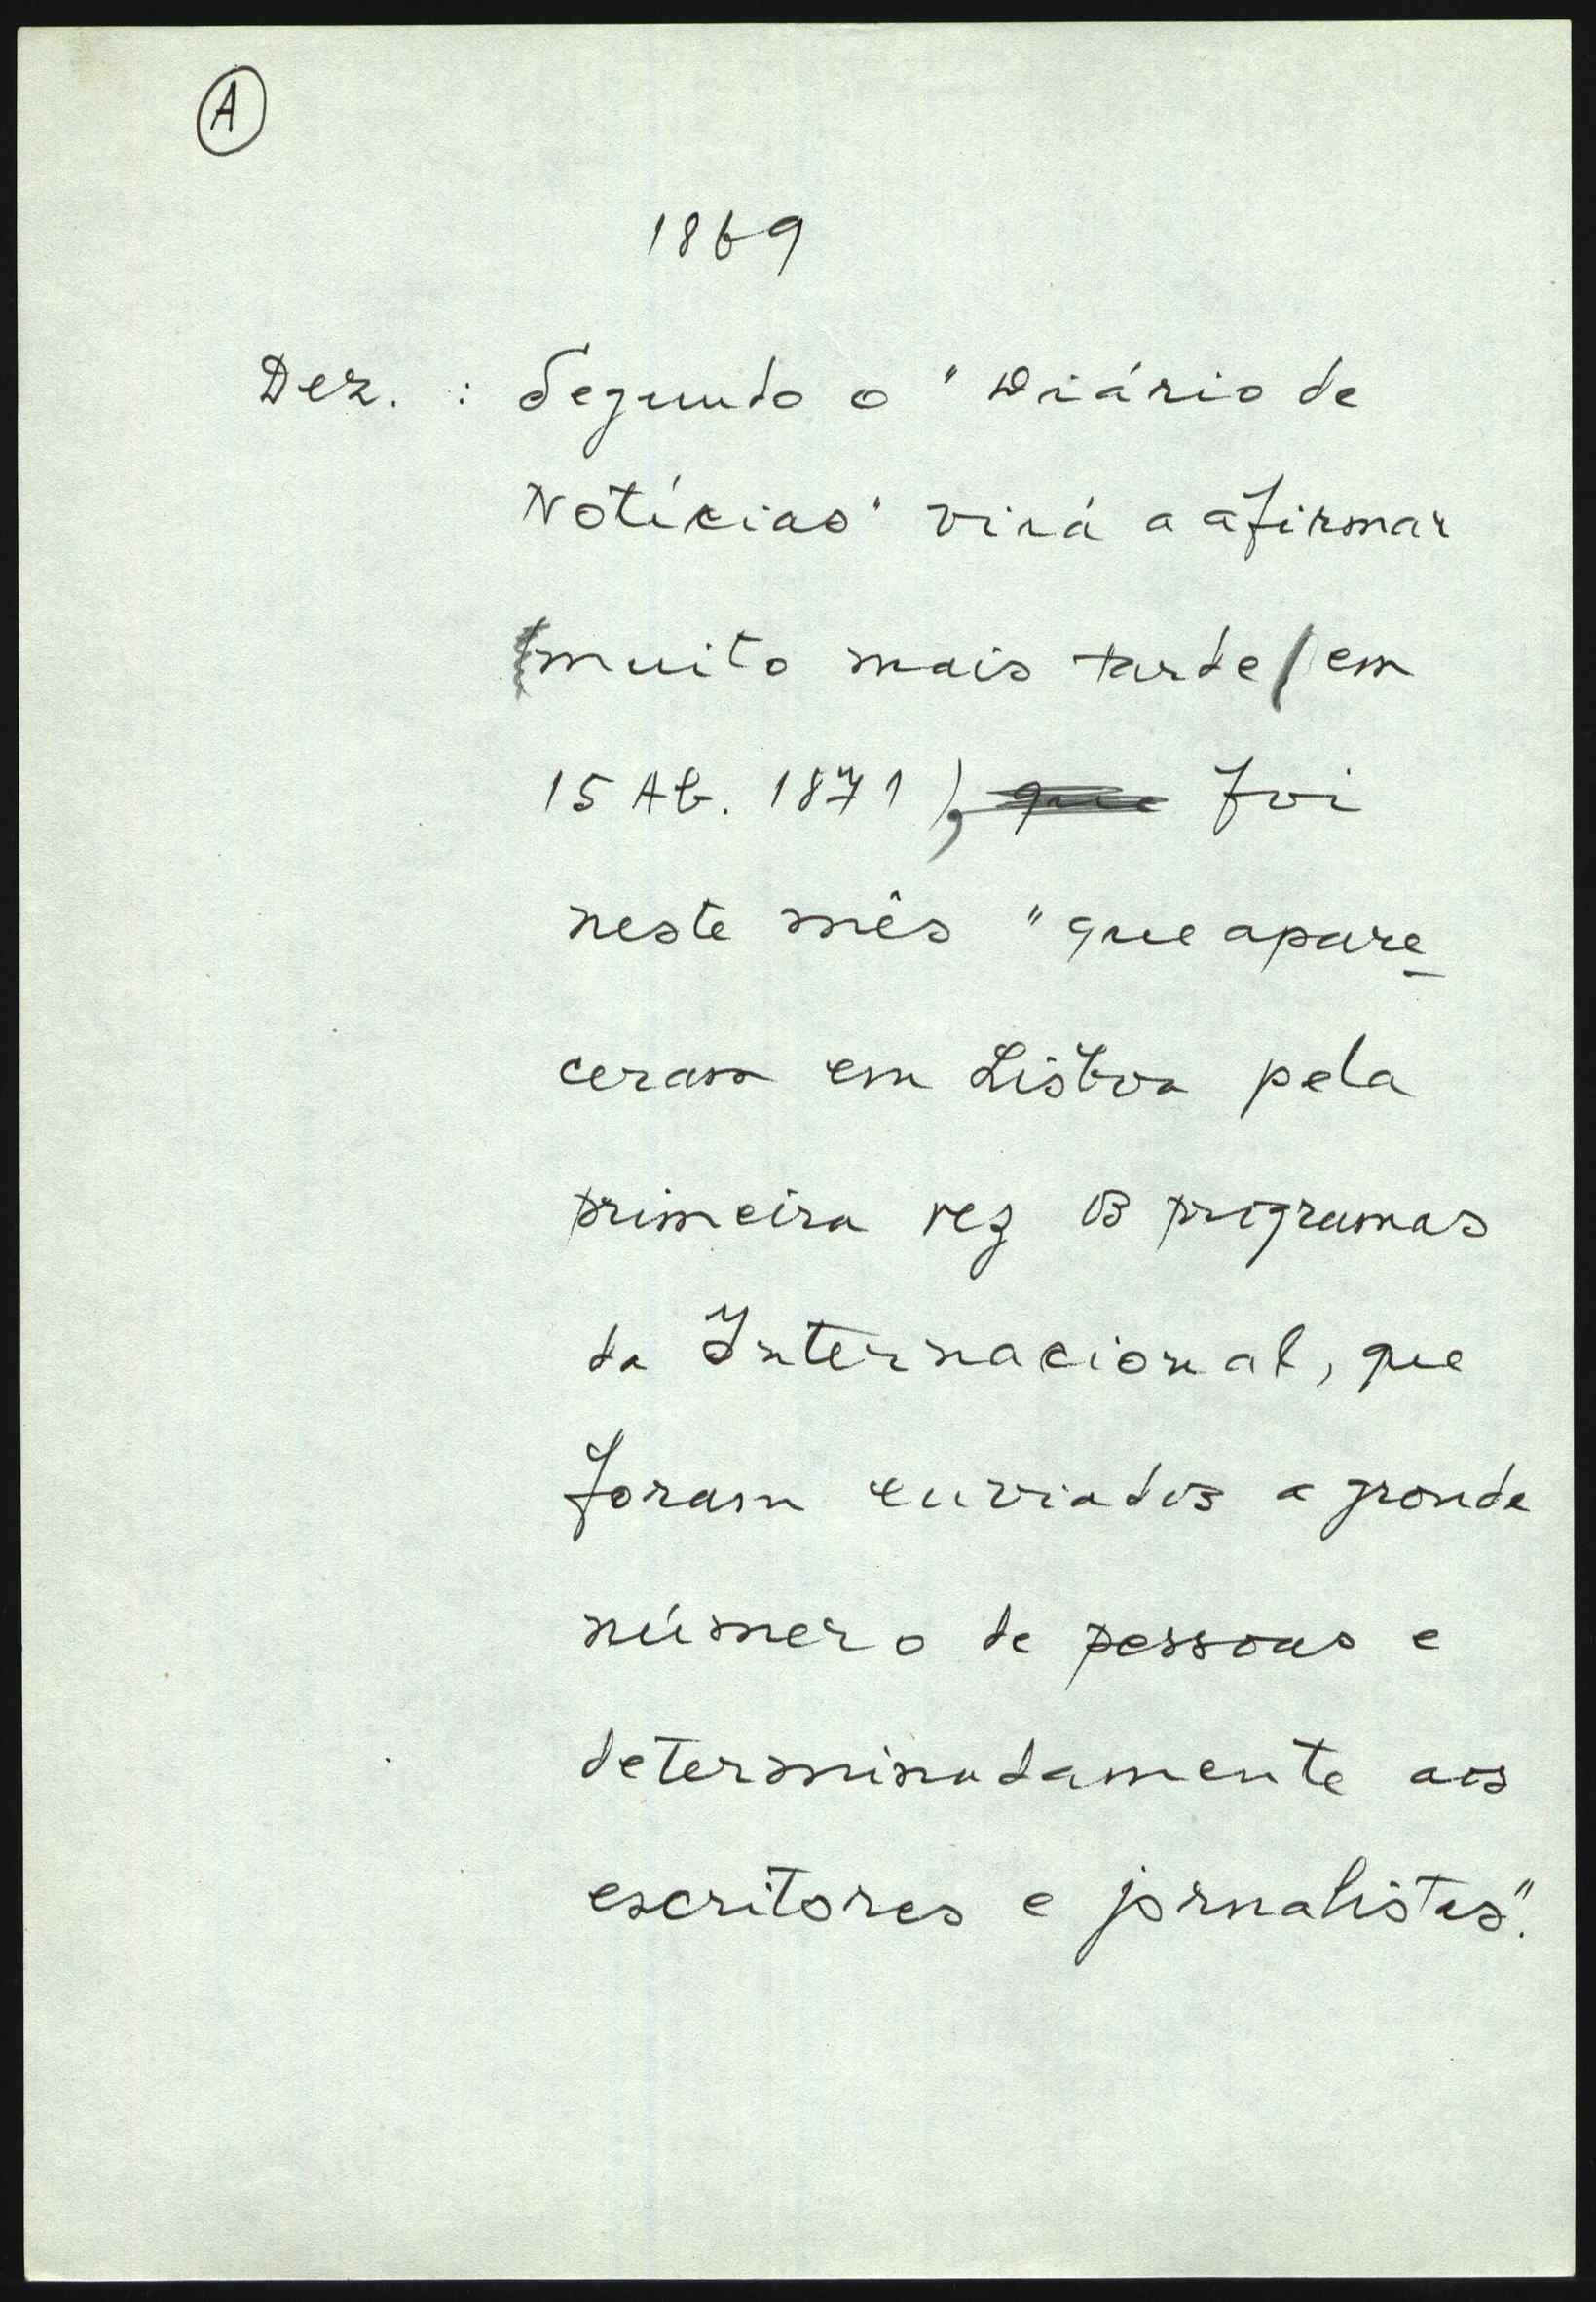 A
1869
Dez. : Segundo o "Diário de
Notícias" virá a afirmar
muito mais tarde (em
15 Ab. 1871), foi
neste mês "que apare
ceram em Lisboa pela
primeira vez os programas
da Internacional, que
foram enviados a grande
número de pessoas e
determinadamente aos
escritores e jornalistas".